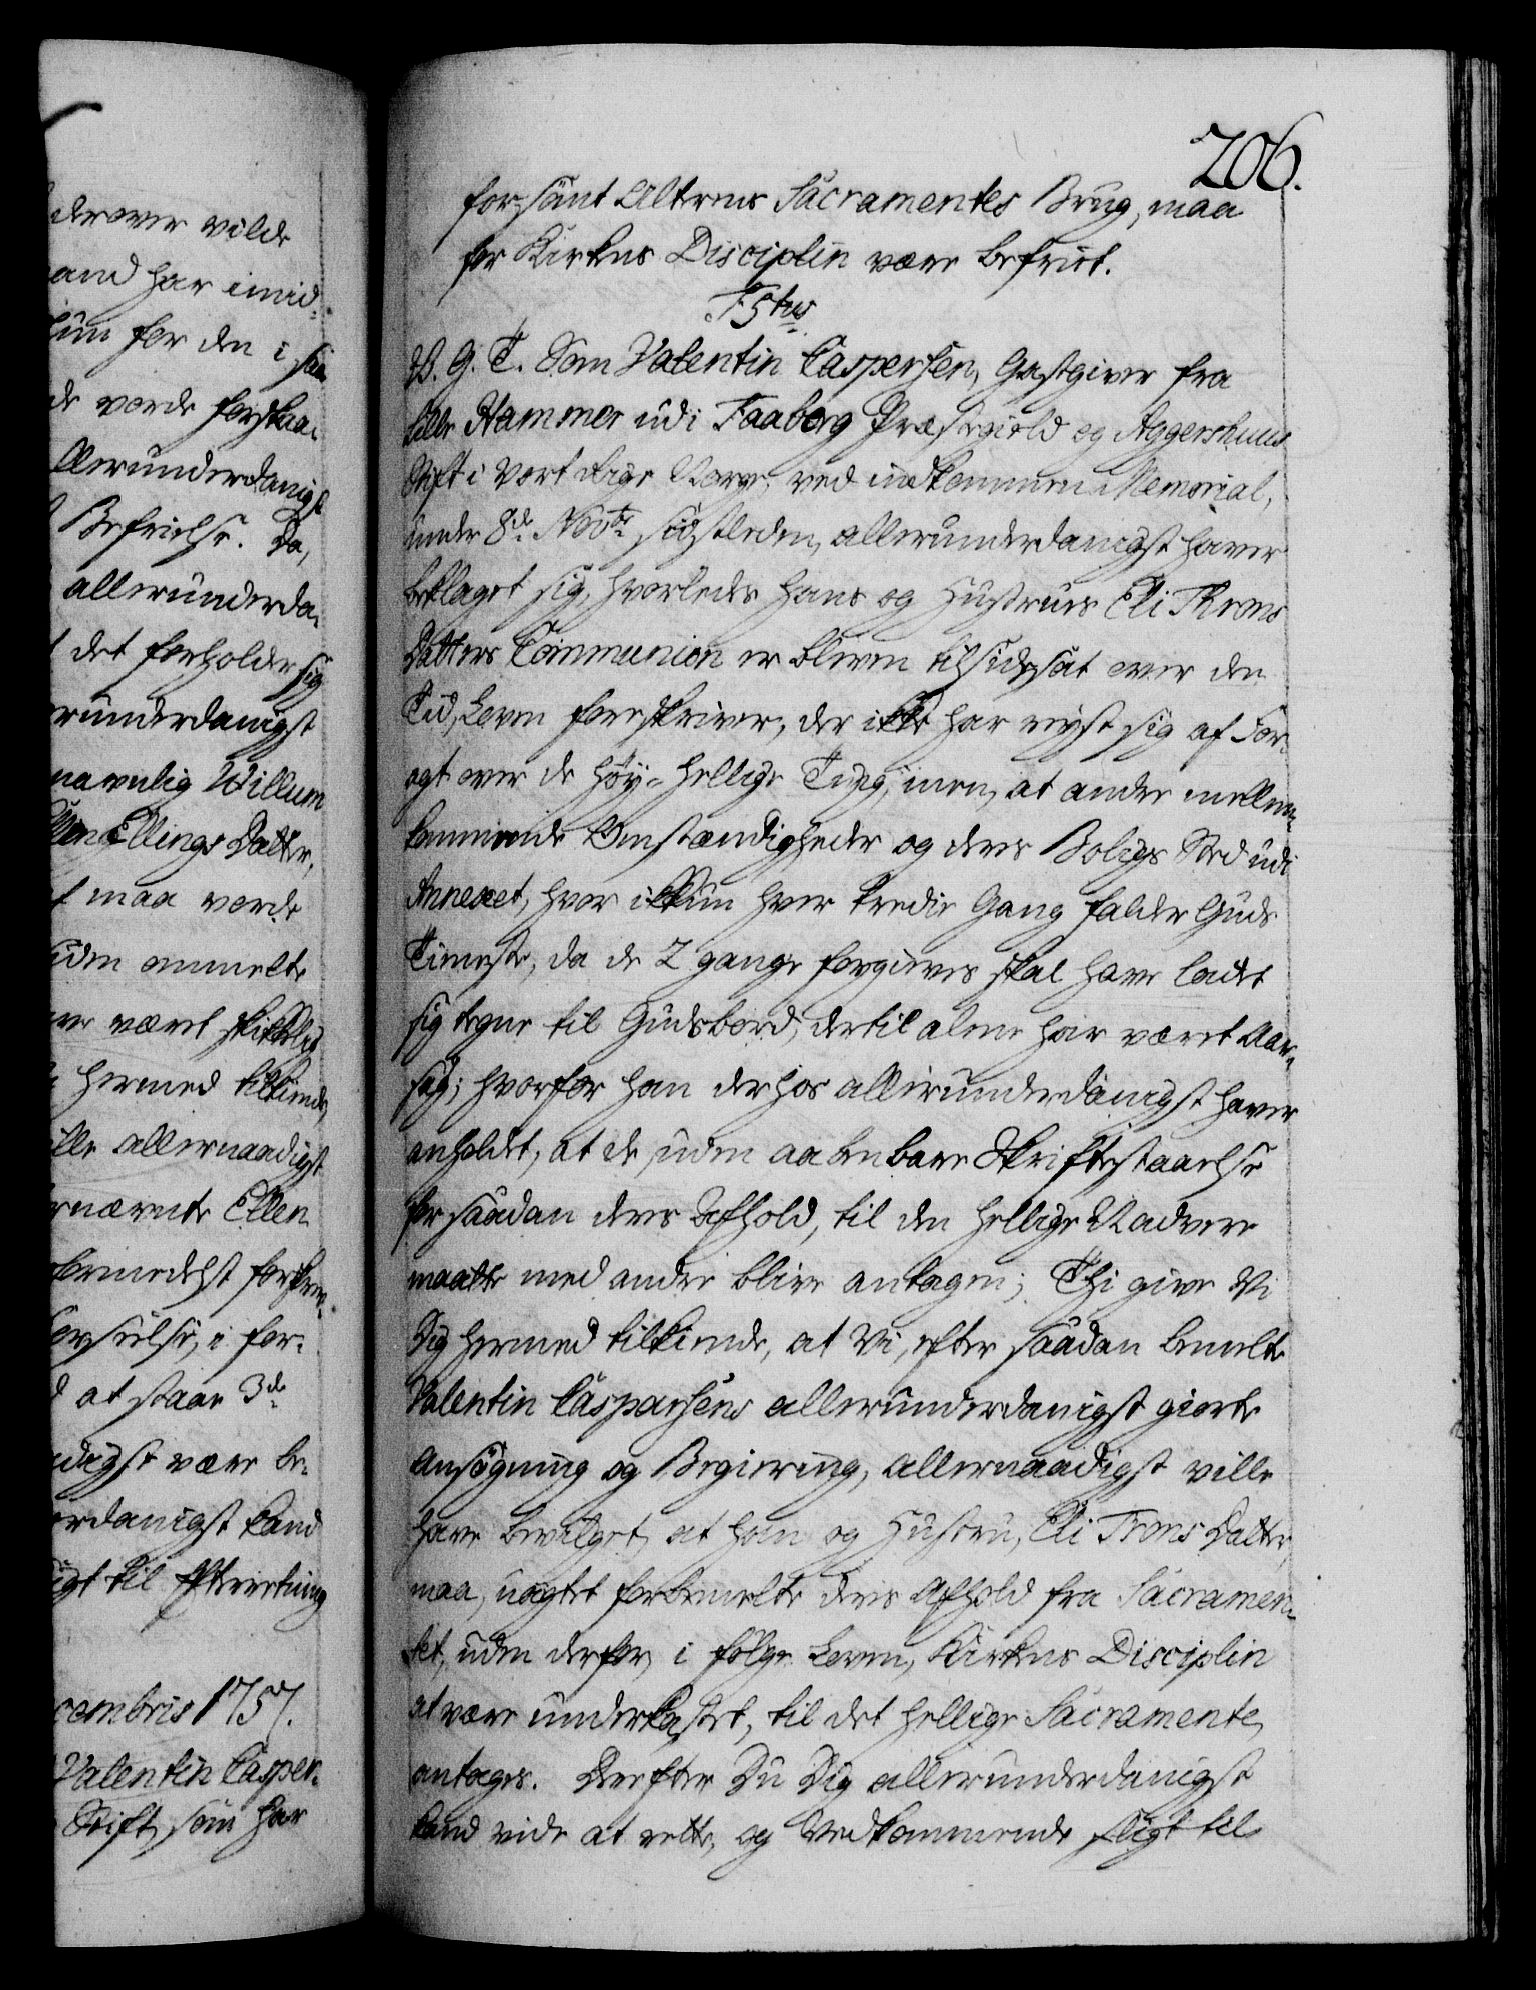 derover vilde
and har imid-
hun for den i saa
de vorde forskaa-
llerunderdanigst
Befrielse. Da,
allerunderda-
det forholder sig
runderdanigst
navnlig Willum
Ellings Datter,
maa vorde
iden anmelte
være været skikkelig
hermed tilkiende,
ille allernaadigst
rnævnte Ellen
formedelst forskrev-
forseelse, i for-
at staae 3de
digst være be-
erdanigst kand
igt til Efterretning
cembris 1757.
Valentin Casper-
Stift, som har
206.
forsømt Alterens Sacramentes Brug, maa
for Kirkens Disciplin være befriet.
F 5tus
V. G. T. Som Valentin Caspersen, Gastgiver fra
Lille Hammer udi Faaberg Præstegield og Aggershuus
Stift i Vort Rige Norge, ved indkommen Memorial,
under 8de Novbr sidstleden, allerunderdanigst haver
beklaget sig, hvorledes hans og Hustrues Eli Throns
Datters Communion er bleven tilsidesat over den
Tid, Loven foreskriver, der ikke har reyst sig af For-
agt over de høy-hellige Ting, men, at andre mellem-
kommende Omstændigheder og deres Boligs Sted udi
Annexet, hvor ikkun hver tredie Gang falder Guds
Tieneste, da de 2 gange forgieves skal have ladet
sig tegne til Gudsbord, dertil alene har været Aar-
sag; hvorfor han derhos allerunderdanigst haver
anholdet, at de, uden aabenbare Skriftestaaelse
for saadan deres Afhold, til den hellige Nadvere
maatte med andre blive antagen; Thi give Vi
Dig hermed tilkiende, at Vi, efter saadan bemelte
Valentin Caspersens allerunderdanigst giorte
Ansøgning og Begiering, allernaadigst ville
have bevilget, at han og Hustru, Eli Trons Datter,
maa, uagtet forbemelte deres Afhold fra Sacramen-
tet, uden derfor, i følge Loven, Kirkens Disciplin
at være underkastet, til det hellige Sacramente,
antages. Derefter Du Dig allerunderdanigst
kand vide at rette, og Vedkommende sligt til